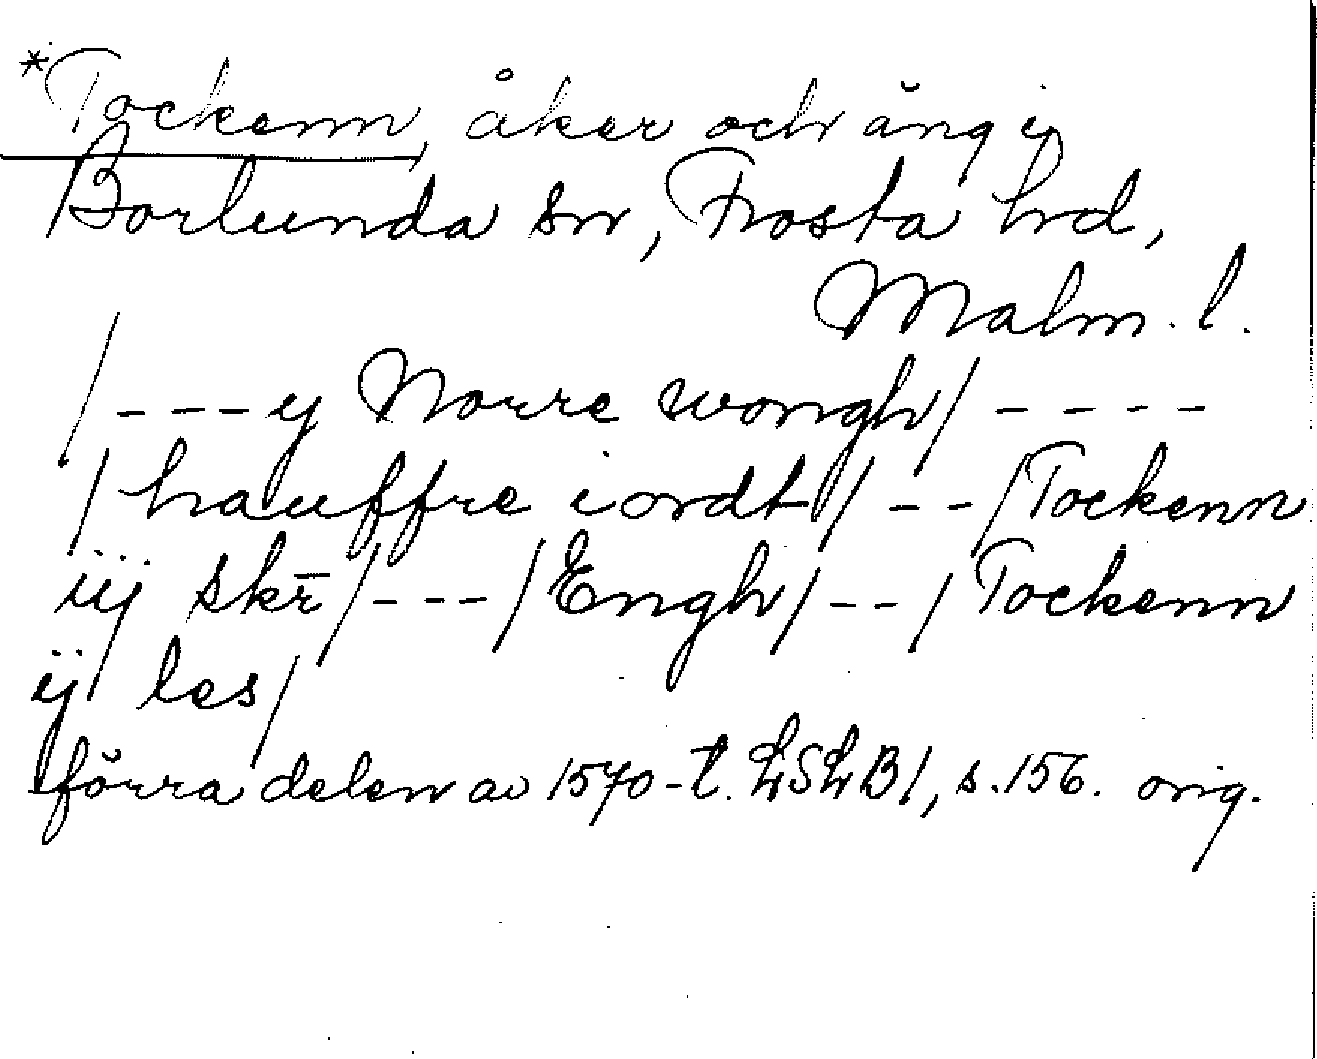 *Tockenn, åker och äng i
Borlunda sn, Frosta hd,
Malm. l.
/---y Norre wongh/----
/hauffre iordt/--/Tockenn
iij skr̅/---/Engh/--/Tockenn
ij les/
förra delen av 1570-t. LSLB1, s.156. orig.